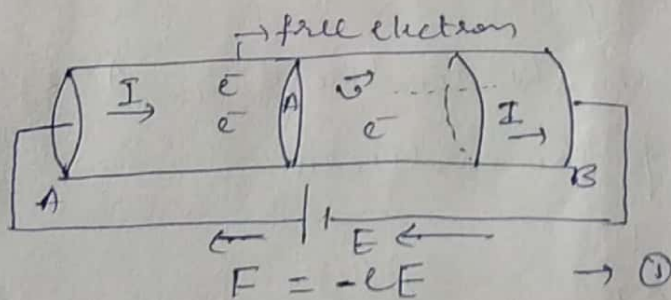 → free electron
I → e⁻ A v→ I →
e⁻ e⁻
A B
← E ←
F = -eE → ①